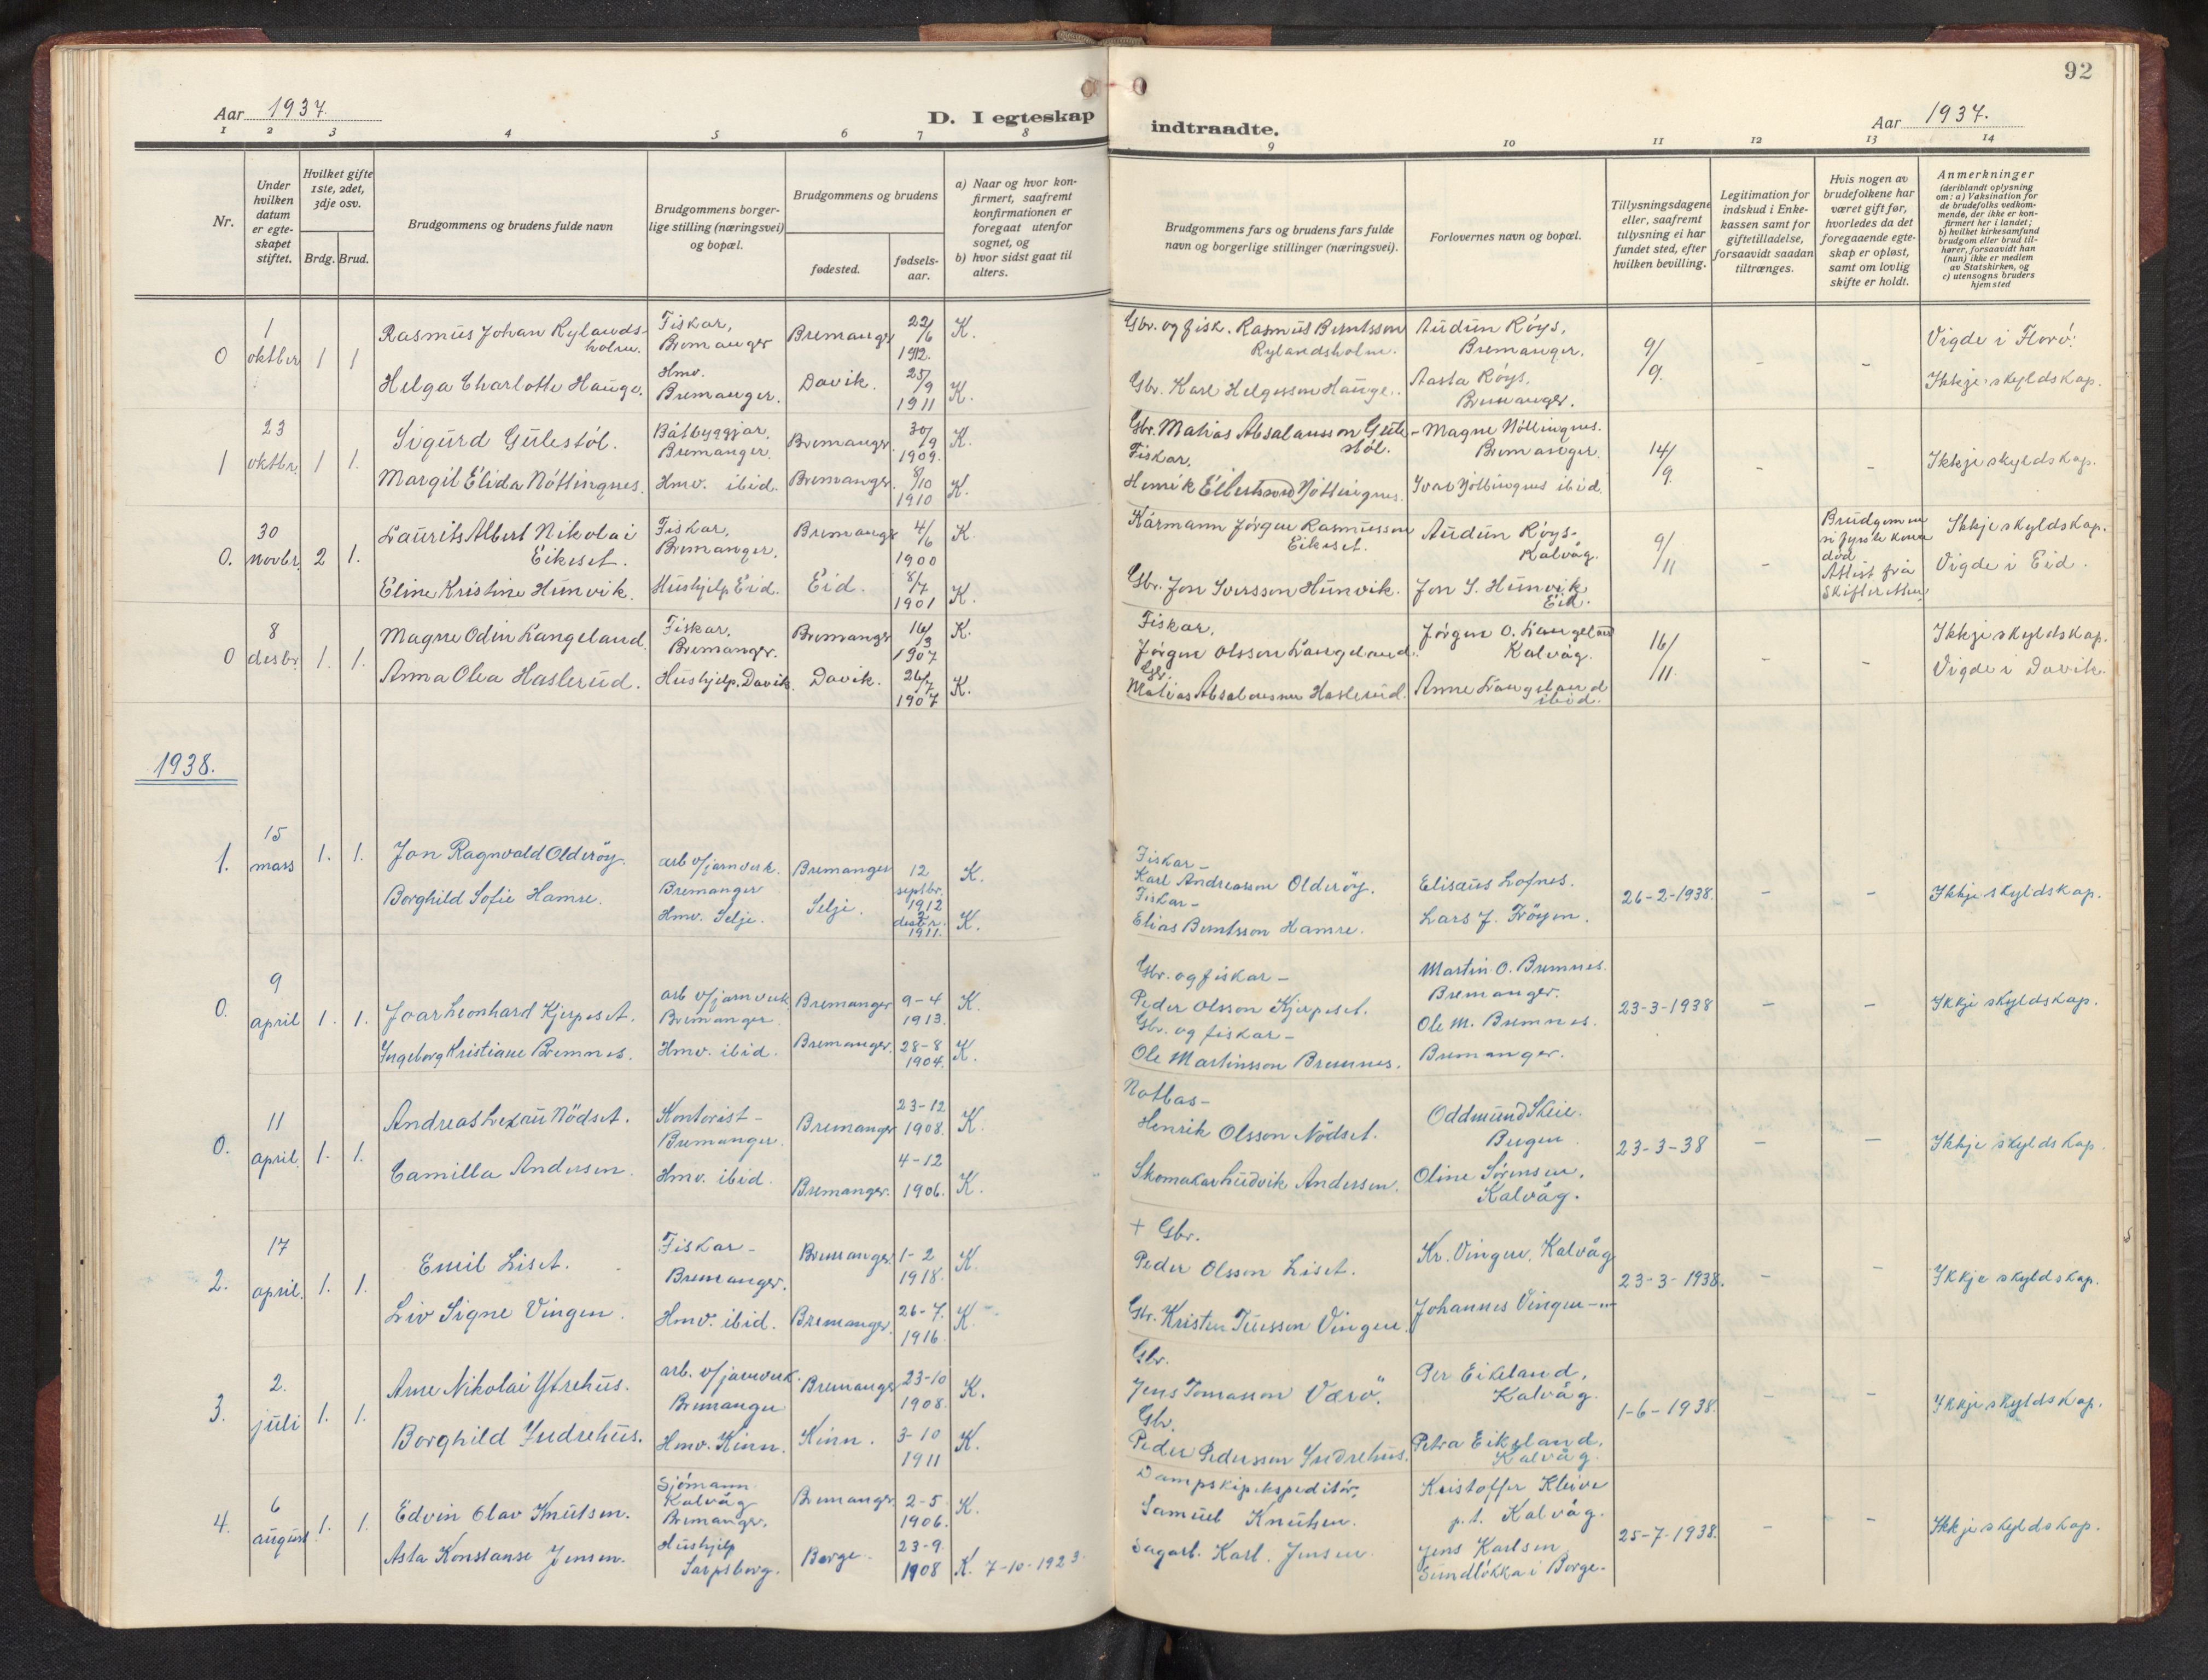 92
Aar 1937.
D. I egteskap
indtraadte.
Aar 1937.
1 2 3 4 5 6 7 8
9 10 11 12 13 14
Nr.
Under hvilken datum er egteskapet stiftet.
Hvilket gifte 1ste, 2det, 3dje osv.
Brdg. Brud.
Brudgommens og brudens fulde navn
Brudgommens borgerlige stilling (næringsvei) og bopæl.
Brudgommens og brudens
fødested.
fødselsaar.
a) Naar og hvor konfirmert, saafremt konfirmationen er foregaat utenfor sognet, og
b) hvor sidst gaat til alters.
Brudgommens fars og brudens fars fulde navn og borgerlige stillinger (næringsvei).
Forlovernes navn og bopæl.
Tillysningsdagene eller, saafremt tillysning ei har fundet sted, efter hvilken bevilling.
Legitimation for indskud i Enkekassen samt for giftetilladelse, forsaavidt saadan tiltrænges.
Hvis nogen av brudefolkene har været gift før, hvorledes da det foregaaende egteskap er opløst, samt om lovlig skifte er holdt.
Anmerkninger
(deriblandt oplysning om: a) Vaksination for de brudefolks vedkommende, der ikke er konfirmert her i landet; b) hvilket kirkesamfund brudgom eller brud tilhører, forsaavidt han (hun) ikke er medlem av Statskirken, og c) utensogns bruders hjemsted
0 1 oktber 1 1
Rasmus Johan Rylandsholm.
Fiskar, Bremanger
Bremanger
22/6 1912.
K.
Gbr. og fisk. Rasmus Berntsson Rylandsholm.
Audun Röys, Bremanger.
9/9.
- -
Vigde i Florö.
Helga Charlotte Hauge.
Hmv. Bremanger.
Davik.
25/9 1911
K.
Gbr. Karl Helgesson Hauge.
Aasta Röys. Bremanger.
Ikkje skyldskap.
1 23 oktbr. 1 1.
Sigurd Gulestöl.
Båtbyggjar, Bremanger.
Bremanger
30/9 1909.
K.
Gbr. Matias Absalonsson Gulestöl.
Magne Nöttingnes. Bremanger.
14/9.
- -
Ikkje skyldskap.
Margit Elida Nöttingnes.
Hmv. ibid.
Bremanger.
8/10 1910
K.
Fiskar, Henrik Eilertsson Nöttingnes.
Ivar Nöttingnes ibid.
0. 30 novbr. 2 1.
Laurits Albert Nikolai Eikeset.
Fiskar, Bremanger.
Bremanger
4/6 1900
K.
Kårmann Jörgen Rasmusson Eikeset.
Audun Röys- Kalvåg.
9/11
-
Ikkje skyldskap.
Eline Kristine Hunvik.
Hushjelp Eid.
Eid.
8/7 1901
K.
Gbr. Jon Iversson Hunvik.
Jon I. Hunvik Eid.
Vigde i Eid.
0 8 desbr. 1. 1.
Magne Odin Langeland.
Fiskar, Bremanger.
Bremanger
16/3 1907
K.
Fiskar, Jörgen Olsson Langeland.
Jörgen O. Langeland Kalvåg.
16/11.
- -
Ikkje skyldskap.
Anna Olea Haslerud.
Hushjelp, Davik.
Davik.
26/7 1907
K.
Gbr. Matias Absalonsen Haslerud.
Anne Langeland ibid.
Vigde i Davik.
1938.
1. 15 mars 1. 1.
Jon Ragnvald Olderöy.
arb v/jarnverk. Bremanger
Bremanger
12 septbr. 1912
K.
Fiskar - Karl Andreasson Olderöy.
Elisæus Lofnes.
26-2-1938.
- -
Ikkje skyldskap.
Borghild Sofie Hamre.
Hmv. Selje.
Selje.
desbr. 1911.
K.
Fiskar - Elias Berntsson Hamre.
Lars J. Fröyen.
0. 9 april 1. 1.
Joar Leonhard Kjerpeset.
arb v/jarnverk Bremanger
Bremanger
9-4 1913.
K.
Gbr. og fiskar - Peder Olsson Kjerpeset.
Martin O. Bremnes. Bremanger.
23-3-1938
- -
Ikkje skyldskap.
Ingeborg Kristiane Bremnes.
Hmv. ibid.
Bremanger.
28-8 1904.
K.
Gbr. og fiskar - Ole Martinsson Bremnes.
Ole M. Bremnes. Bremanger.
0. 11 april 1. 1.
Andreas Lexau Nödset.
Kontorist - Bremanger.
Bremanger
23-12 1908.
K.
Notbas - Henrik Olsson Nödset.
Oddmund Skeie. Bergen
23-3-38
- -
Ikkje skyldskap.
Camilla Andersen.
Hmv. ibid.
Bremanger.
4-12 1906.
K.
Skomakar Ludvik Andersen.
Oline Sørensen, Kalvåg.
2. 17 april. 1. 1.
Emil Liset.
Fiskar - Bremanger.
Bremanger.
1-2 1918.
K.
+ Gbr. Peder Olsson Liset.
Kr. Vingen, Kalvåg
23-3-1938.
- -
Ikkje skyldskap.
Liv Signe Vingen.
Hmv. ibid.
Bremanger.
26-7. 1916
K.
Gbr. Kristen Tuesson Vingen.
Johannes Vingen -"-
3. 2. juli 1. 1.
Arne Nikolai Ytrehus.
arb. v/jarnverk. Bremanger
Bremanger
23-10 1908.
K.
Gbr. Jens Tomasson Værö.
Per Eikeland, Kalvåg.
1-6-1938.
- -
Ikkje skyldskap.
Borghild Indrehus.
Hmv. Kinn.
Kinn.
3-10 1911
K.
Gbr. Peder Pedersson Indrehus.
Petra Eikeland, Kalvåg.
4. 6 august 1. 1.
Edvin Olav Knutsen.
Sjömann Kalvåg Bremanger.
Bremanger
2-5 1906.
K.
Dampskipekspeditör, Samuel Knutsen.
Kristoffer Kleive p.t. Kalvåg.
25-7-1938.
- -
Ikkje skyldskap.
Asta Konstanse Jensen.
Hushjelp Sarpsborg.
Borge.
23-9. 1908
K. 7-10-1923.
Sagarb. Karl. Jensen.
Jens Karlsen Sundløkka i Borge.